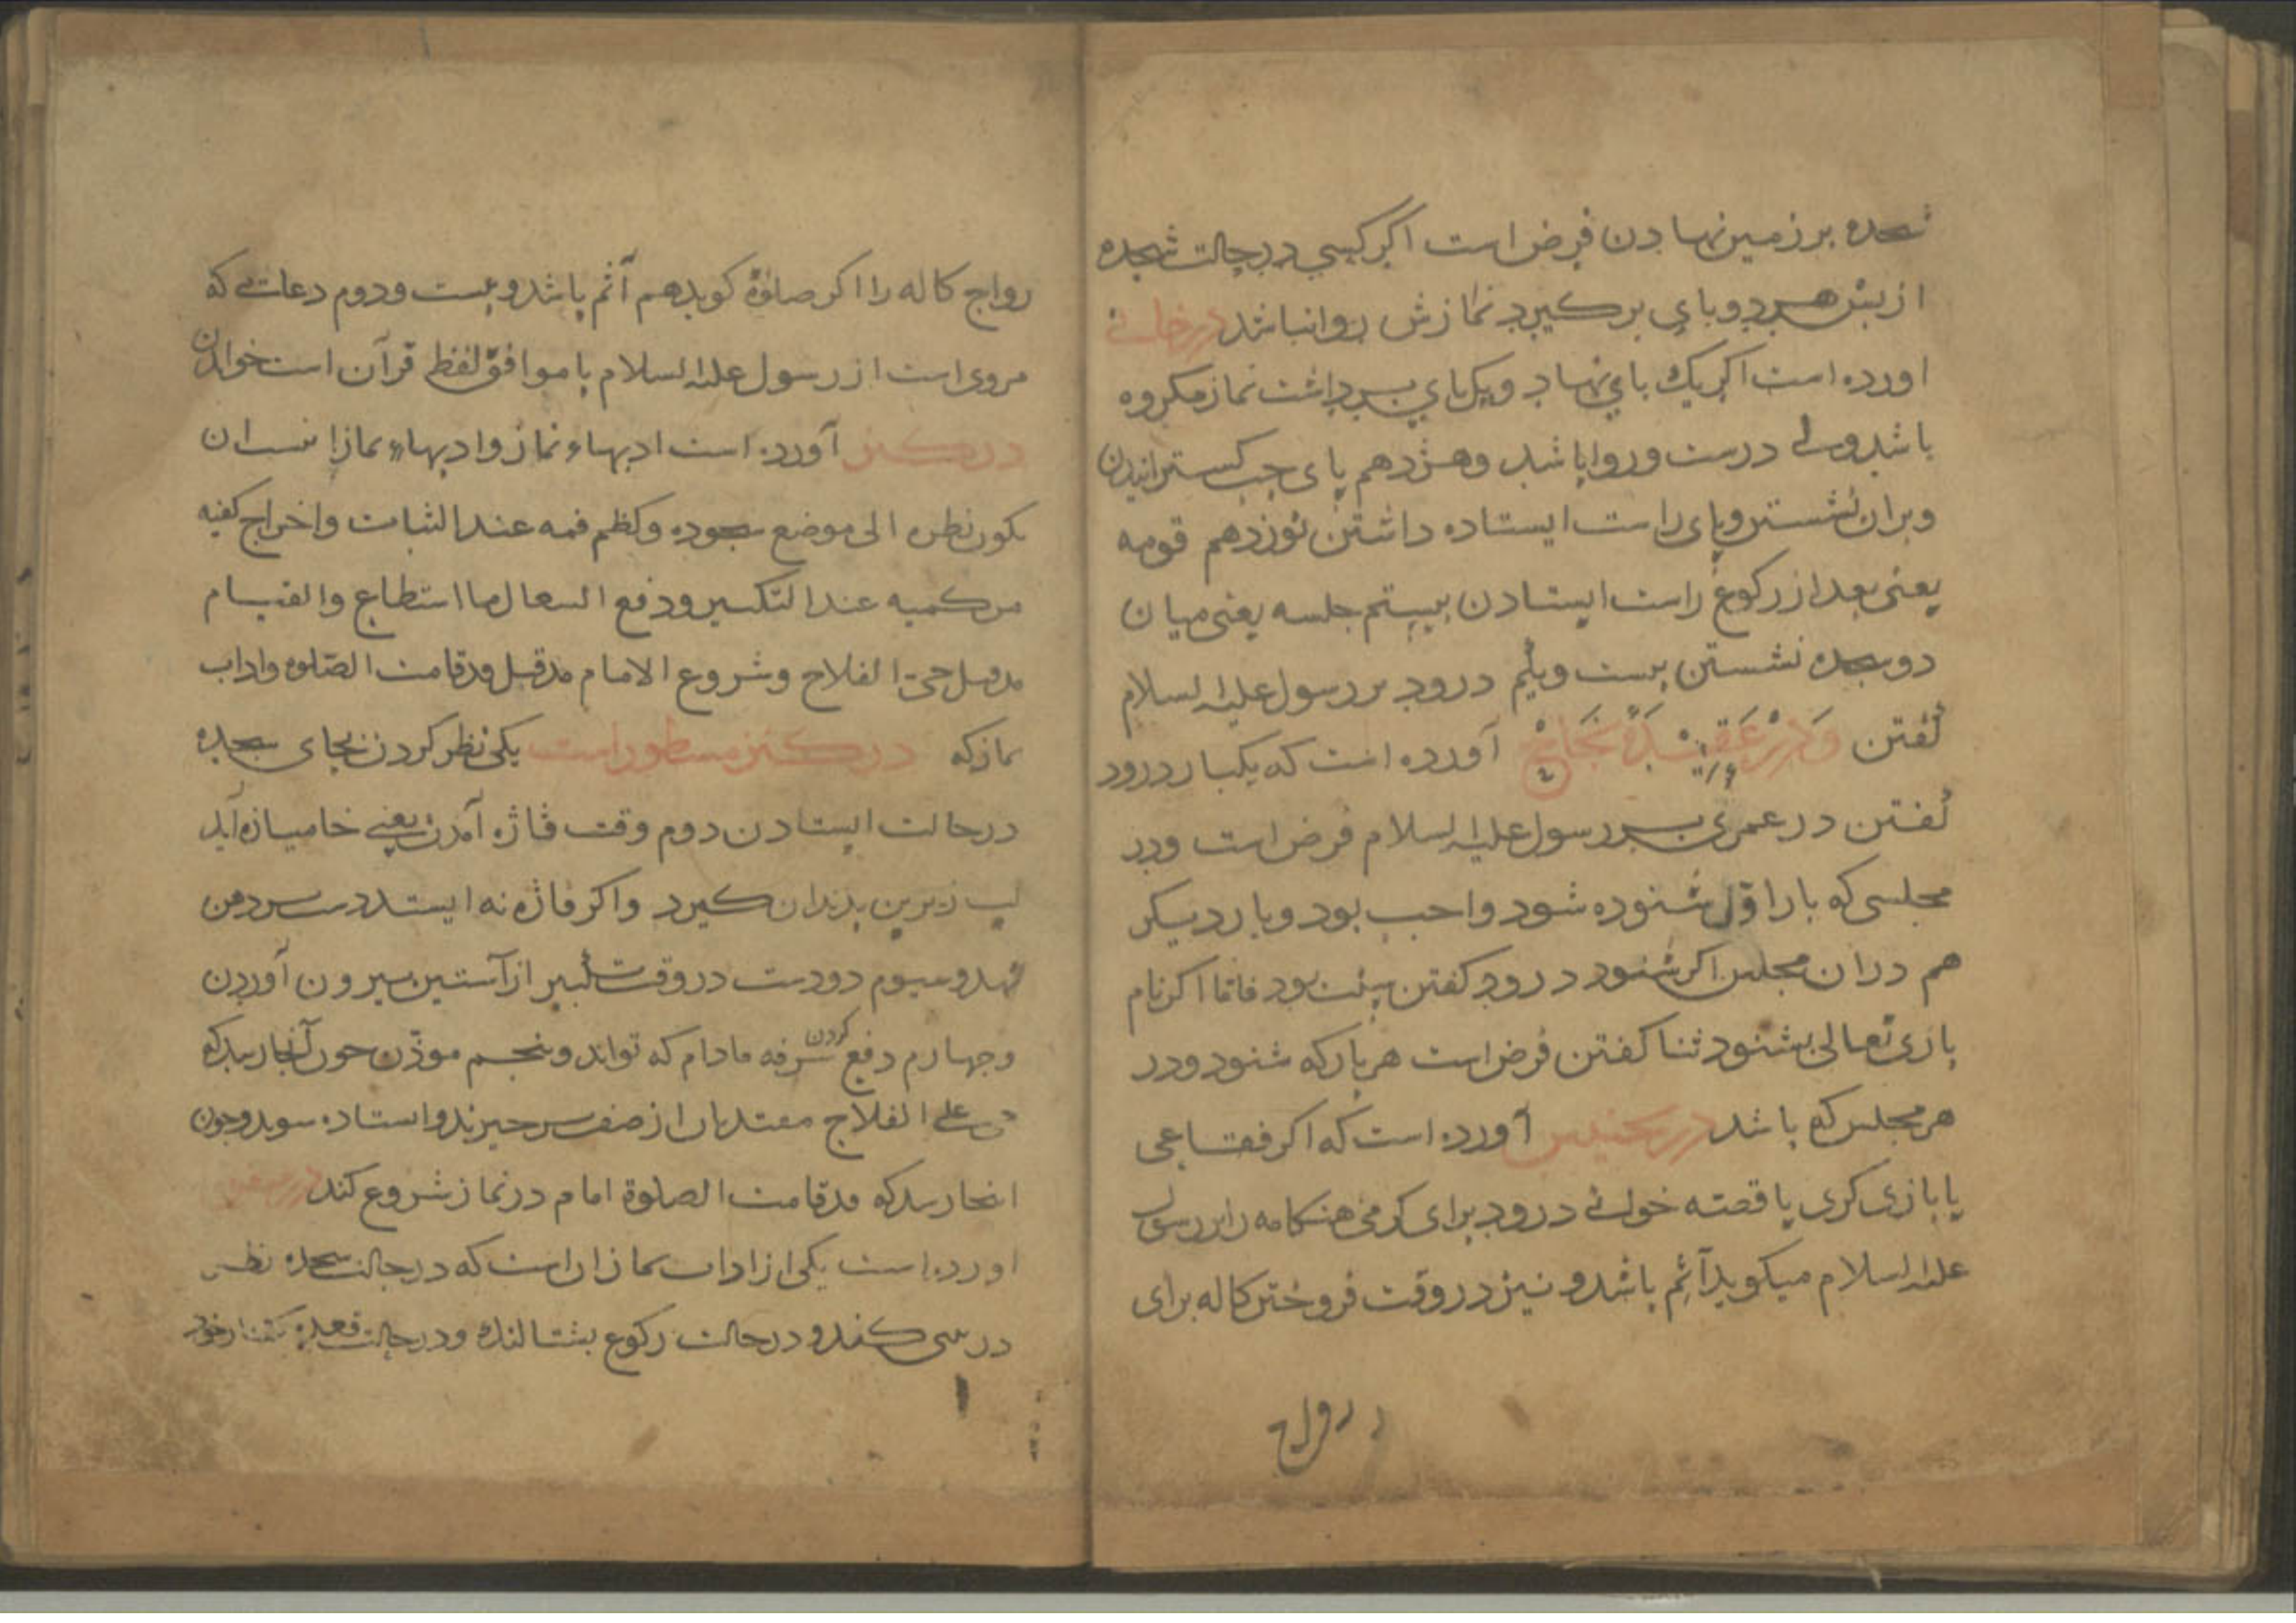 سجده بر زمین نهادن فرض است اکر کسی در حالت سجده
از پیش هر دو پای بر کیرد نمازش روا نباشد در خانی
اورده است اکر یك پای نهاد و یك پای بر داشت نماز مکروه
باشد ولی درست و روا باشد وهژدهم پای چپ کسترانیدن
وبران نشستن و پای راست ایستاده داشتن نوزدهم قومه
یعنی بعد از رکوع راست ایستادن بیستم جلسه یعنی میان
دو سجده نشستن بیست ویکم درود بر رسول علیه السلام
کفتن ودر عقیده آورده است که یکبار درود
کفتن در عمری بر رسول علیه السلام فرض است ودر
مجلسی که بار اوّل شنوده شود واجب بود وبار دیکر
هم دران مجلس اکر شنود درود کفتن سنت بود فاما اکر نام
باری تعالی بشنود ثنا کفتن فرض است هر بار که شنود ودر
هر مجلس که باشد در تجنیس آورده است که اکر فقاعی
یا بازی کری یا قصّه خوانی درود برای کرمی هنکامه را بر رسول
علیه السلام میکوید آثم باشد و نیز در وقت فروختن کاله برای
رواج
رواج کاله را اکر صلوٰة کوید هم آثم باشد وبیست ودوم دعائی که
مروی است از رسول علیه السلام یا موافق لفظ قرآن است خواندن
در کنز آورده است ادبهاء نماز وادبهاء نماز
یکون نظره الی موضع سجوده وکظم فمه عند الثبات واخراج کفیه
من کمیه عند التکبیر ودفع السعال ما استطاع والقیام
مدقیل حیّ الفلاح وشروع الامام مدقیل قدقامت الصّلوه واداب
نماز که در کنز مسطور است یکی نظر کردن بجای سجده
در حالت ایستادن دوم وقت فاژه آمدن یعنی خامیازه آید
لب زیرین بدندان کیرد واکر فاژه نه ایستد دست بر دهن
نهد وسیوم دو دست در وقت تکبیر از آستین بیرون آوردن
وچهارم دفع کردن سرفه مادام که تواند وپنجم موذّن چون آنجا رسد که
حی علی الفلاح مقتدیان از صف برخیزند واستاده شوند وچون
انجا رسد که قدقامت الصلوة امام در نماز شروع کند
اورده است یکی از اداب نماز ان است که در حالت سجده نظر
در بینی کند و در حالت رکوع بشتالنك ودر حالت قعده خود